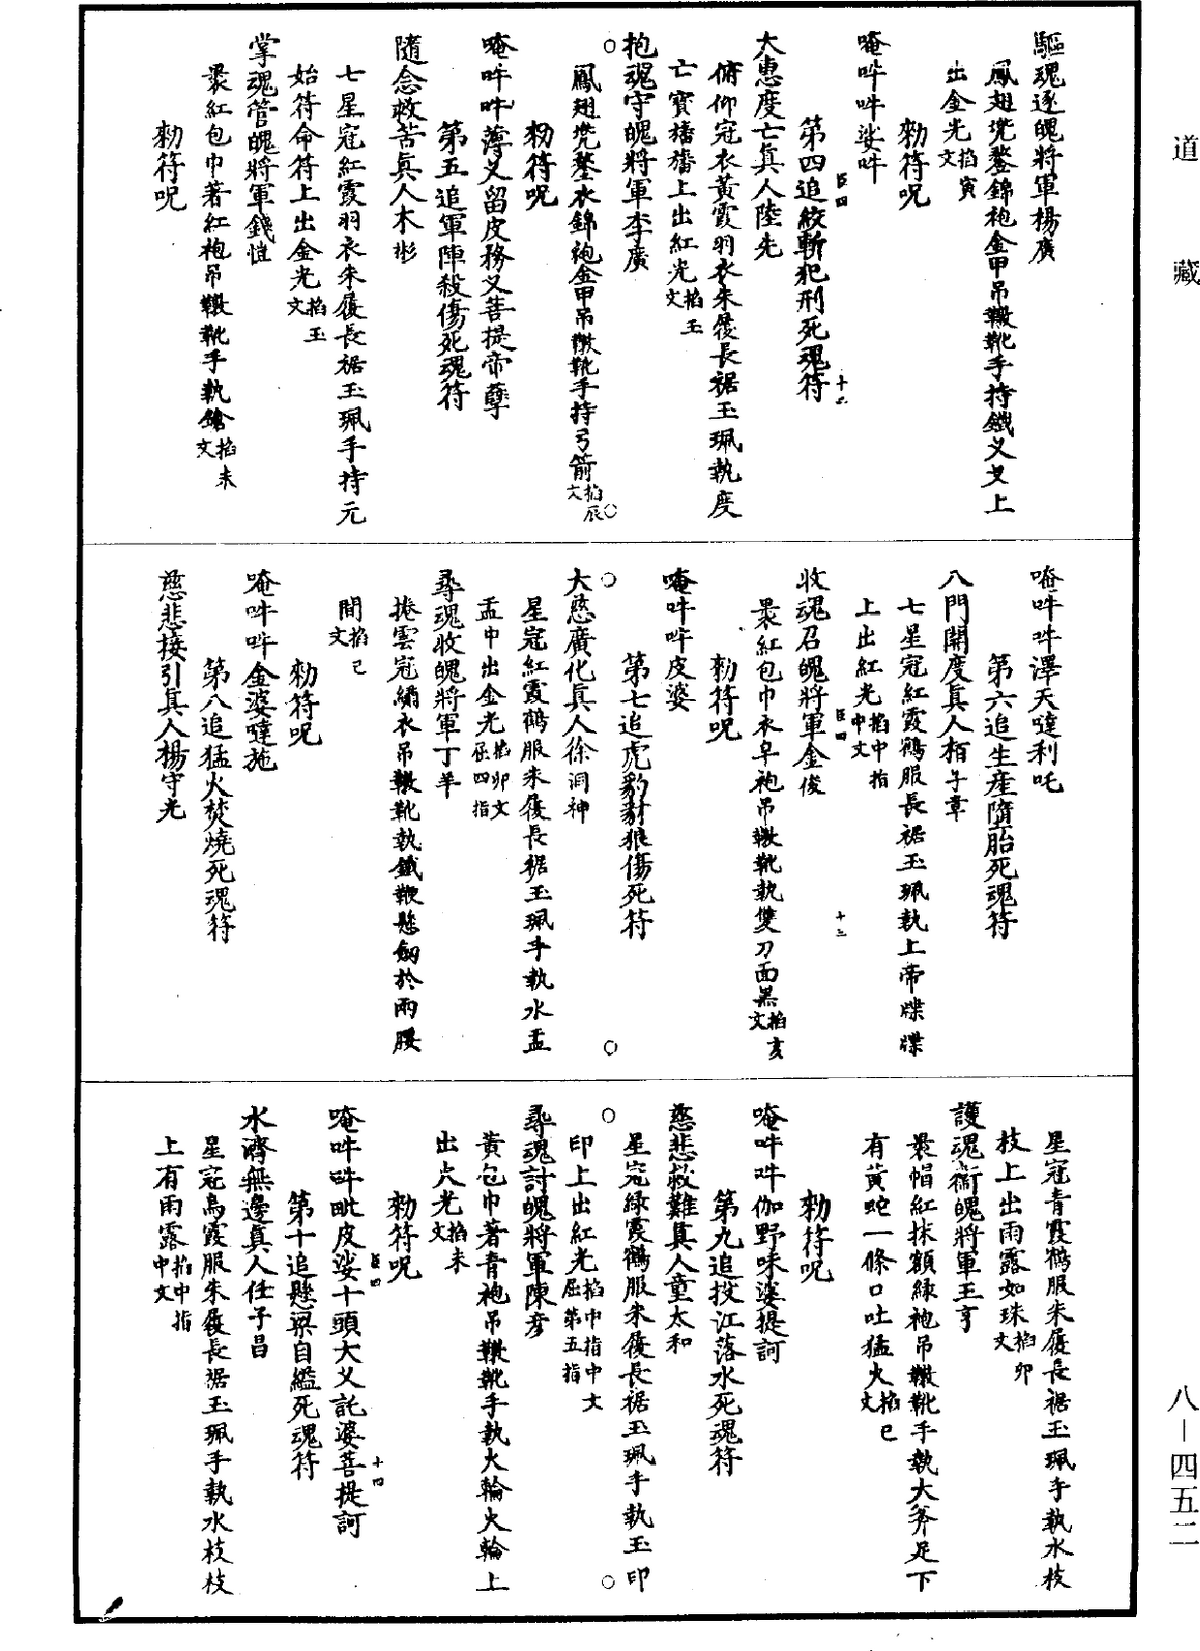 道藏
驅魂逐魄將軍楊廣
鳳翅兠鍪錦袍金甲吊𩋾靴手持鐵叉叉上
出金光掐寅文
勑符呪
唵吽吽娑吽
第四追絞斬犯刑死魂符
大惠度亡眞人陸先
俯仰冠衣黃霞羽衣朱履長裾玉珮執度
亡寶旛旛上出紅光掐玉文
抱魂守魄將軍李廣
鳳翅兠鍪衣錦袍金甲吊𩋾靴手持弓箭掐辰文
勑符呪
唵吽吽薄叉留皮務叉菩提帝孽
第五追軍陣殺傷死魂符
隨念救苦眞人木彬
七星冠紅霞羽衣朱履長裾玉珮手持元
始符命符上出金光掐玉文
掌魂管魄將軍錢愷
褁紅包巾著紅袍吊𩋾靴手執鎗掐未文
勑符呪
唵吽吽澤天噠利吒
第六追生產墮胎死魂符
八門開度眞人栢子章
七星冠紅霞鶴服長裾玉珮執上帝牒牒
上出紅光掐中指中文
收魂召魄將軍金俊
褁紅包巾衣皁袍吊𩋾靴執雙刀面黑掐亥文
勑符呪
唵吽吽皮婆
第七追虎豹豺狼傷死符
大慈廣化眞人徐洞神
星冠紅霞鶴服朱履長裾玉珮手執水盂
盂中出金光掐卯文屈四指
尋魂收魄將軍丁羊
捲雲冠繡衣吊𩋾靴執鐵鞭懸劒於兩腰
間掐巳文
勑符呪
唵吽吽金婆噠施
第八追猛火焚燒死魂符
慈悲接引眞人楊守光
星冠青霞鶴服朱履長裾玉珮手執水枝
枝上出雨露如珠掐卯文
護魂衛魄將軍王亨
褁帽紅抹額綠袍吊𩋾靴手執大斧足下
有黃蛇一條口吐猛火掐巳文
勑符呪
唵吽吽伽野咊婆提訶
第九追投江落水死魂符
慈悲救難眞人童太和
星冠綠霞鶴服朱履長裾玉珮手執玉印
印上出紅光掐中指中文屈第五指
尋魂討魄將軍陳彥
黃包巾著青袍吊𩋾靴手執火輪火輪上
出火光掐未文
勑符呪
唵吽吽毗皮娑十頭大乂託婆菩提訶
第十追懸梁自縊死魂符
水濟無邊眞人任子昌
星冠烏霞服朱履長裾玉珮手執水枝枝
上有雨露掐中指中文
八－四五二